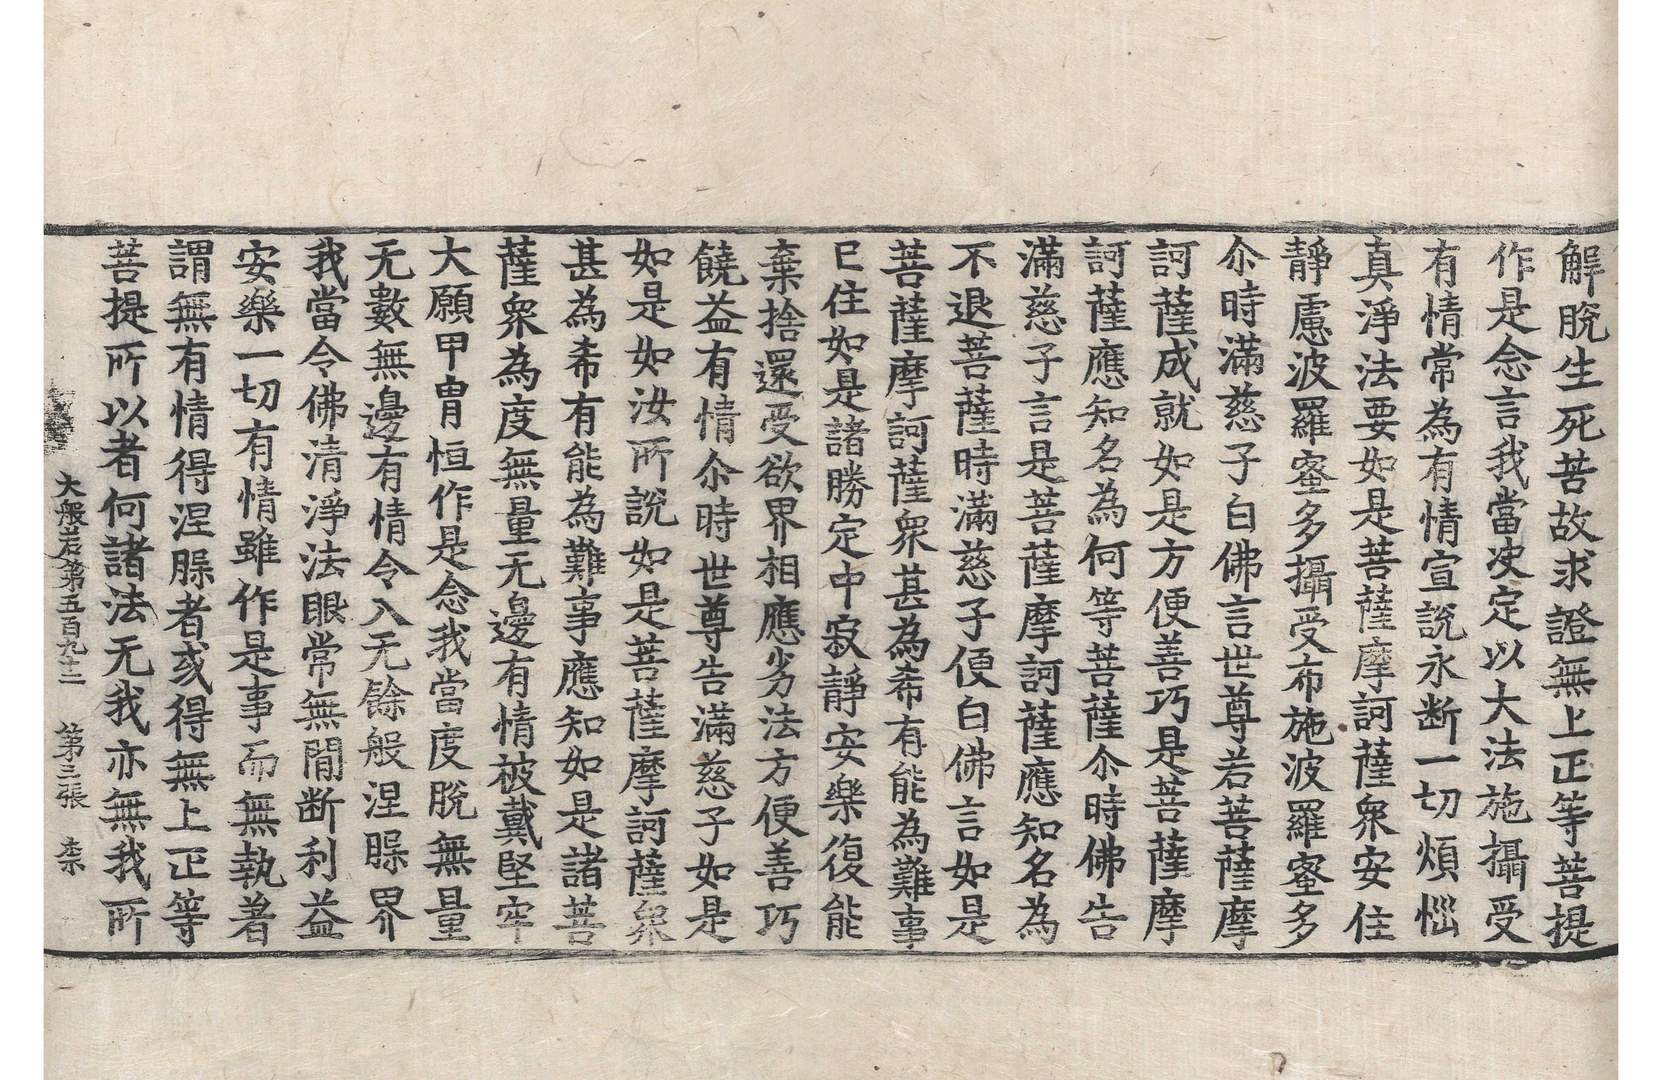 解脫生死苦故求證無上正等菩提
作是念言我當决定以大法施攝受
有情常為有情宣說永斷一切煩惱
真淨法要如是菩薩摩訶薩衆安住
靜慮波羅蜜多攝受布施波羅蜜多
尒時滿慈子白佛言世尊若菩薩摩
訶薩成就如是方便善巧是菩薩摩
訶薩應知名為何等菩薩尒時佛告
滿慈子言是菩薩摩訶薩應知名為
不退菩薩時滿慈子便白佛言如是
菩薩摩訶薩衆甚為希有能為難事
已住如是諸勝定中寂靜安樂復能
棄捨還受欲界相應劣法方便善巧
饒益有情尒時世尊告滿慈子如是
如是如汝所說如是菩薩摩訶薩衆
甚為希有能為難事應知如是諸菩
薩衆為度無量无邊有情被戴堅牢
大願甲冑恒作是念我當度脫無量
无數無邊有情令入无餘般涅槃界
我當令佛清淨法眼常無閒断利益
安樂一切有情雖作是事而無執著
謂無有情得涅槃者或得無上正等
菩提所以者何諸法无我亦無我所
大般若第五百九十二　第三張　柰